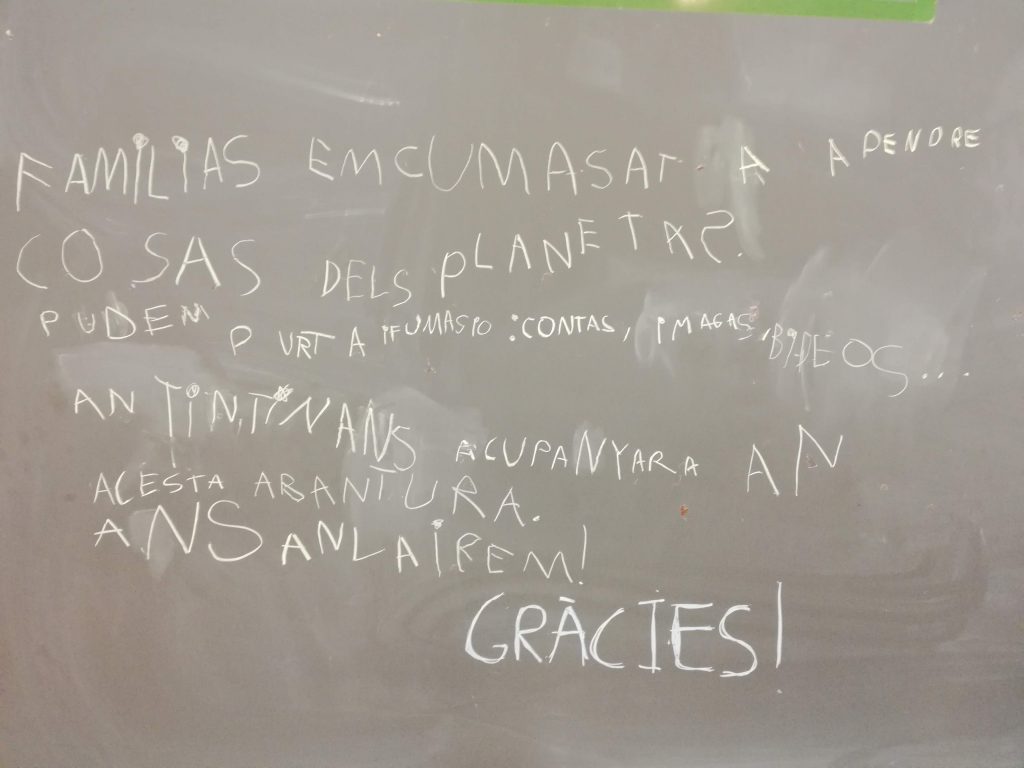 FAMÍLIAS EMCUMASAT A APENDRE
COSAS DELS PLANETAS.
PUDEM PURTA IFUMASIO: CONTAS, IMAGAS, BIDEOS...
AN TINTIN ANS ACUPANYARA AN
ACESTA ABANTURA.
ANS ANLAIREM!
GRÀCIES!